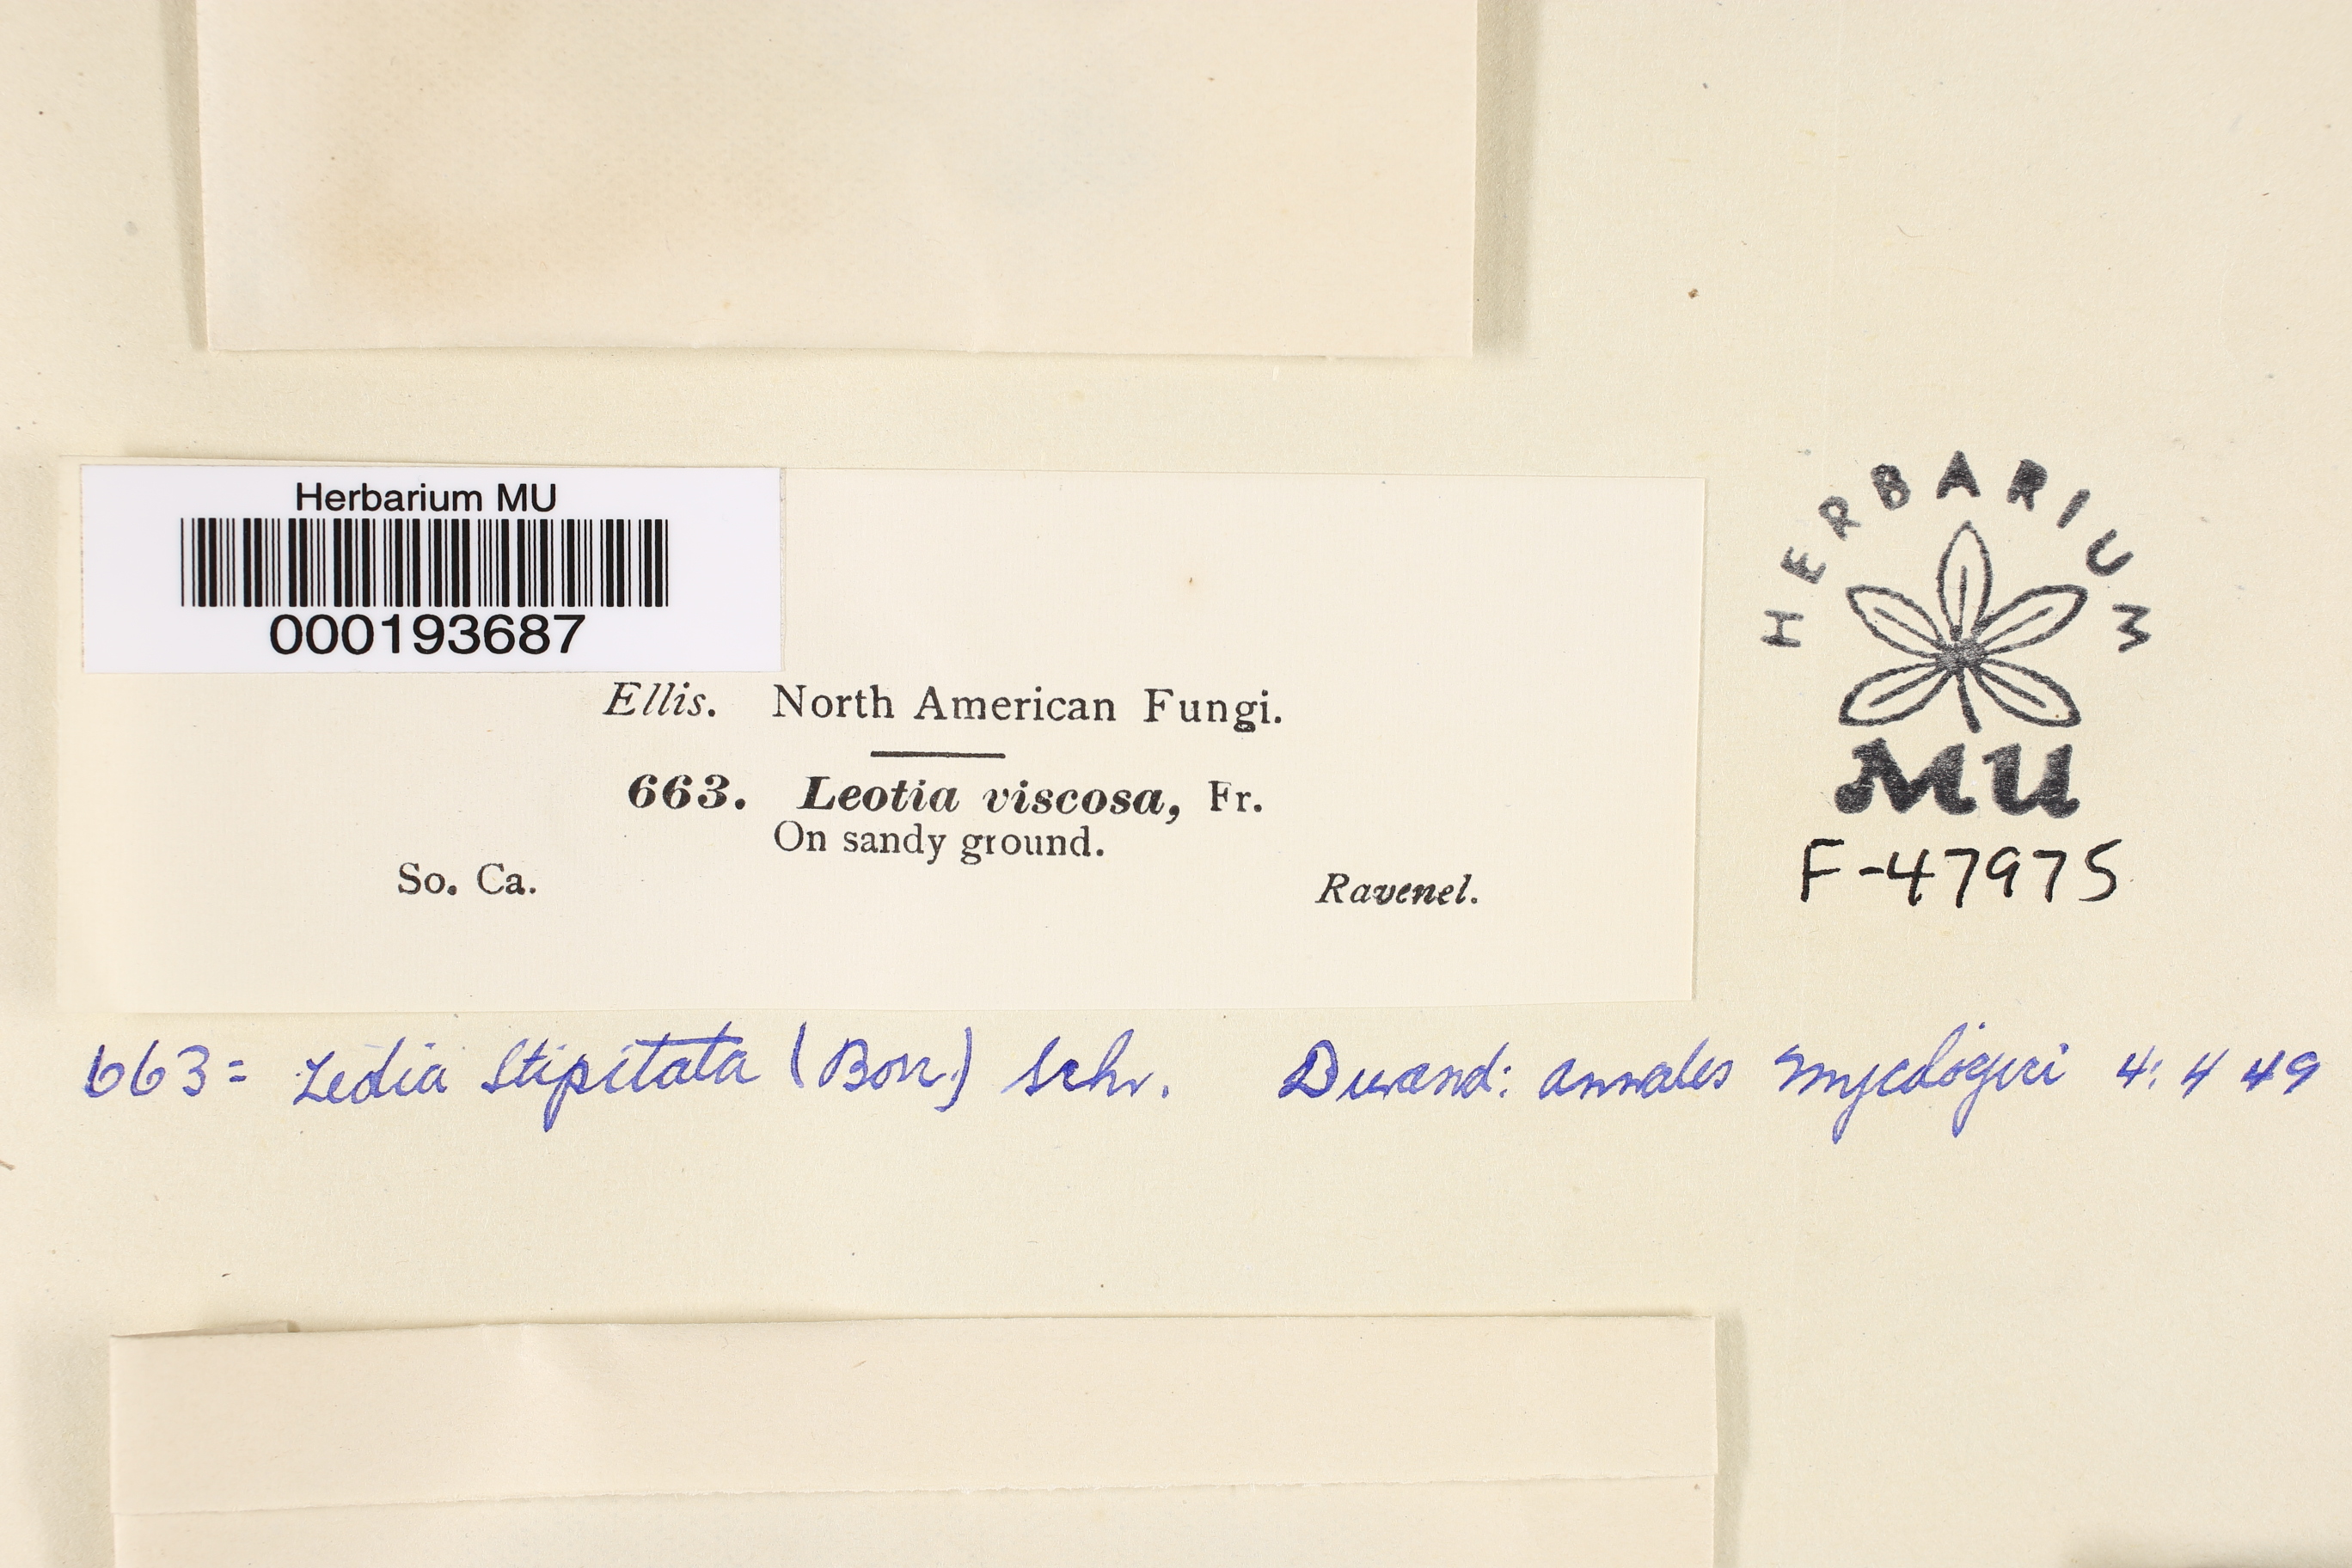 Herbarium MU
000193687
Ellis. North American Fungi.
663. Leotia viscosa, Fr.
On sandy ground.
So. Ca. Ravenel.
HERBARIUM
MU
F-47975
663= Leotia Stipitata (Bon) Schr. Durand: Annales Mycologici 4: 449